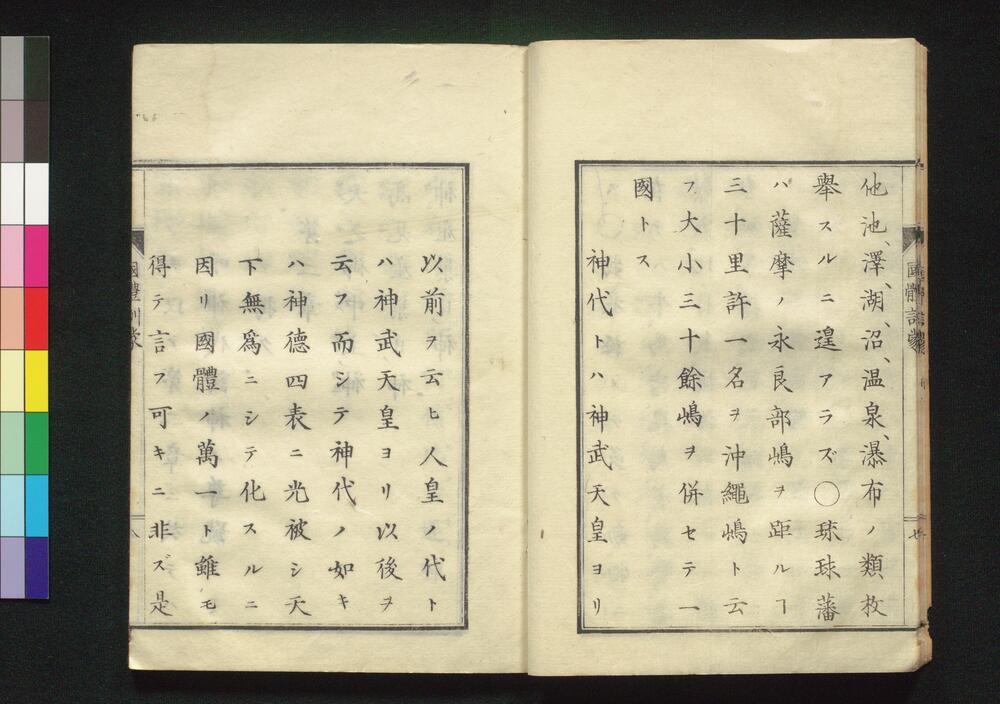 他池、澤、湖、沼、温泉、瀑布ノ類枚
擧スルニ遑アラズ〇琉球藩
ハ薩摩ノ永良部嶋ヲ距ルヿ
三十里許一名ヲ沖繩嶋ト云
フ大小三十餘嶋ヲ併セテ一
國トス
神代トハ神武天皇ヨリ
以前ヲ云ヒ人皇ノ代ト
ハ神武天皇ヨリ以後ヲ
云フ而シテ神代ノ如キ
ハ神德四表ニ光被シ天
下無爲ニシテ化スルニ
因リ國體ノ萬一ト雖モ
得テ言フ可キニ非ズ是